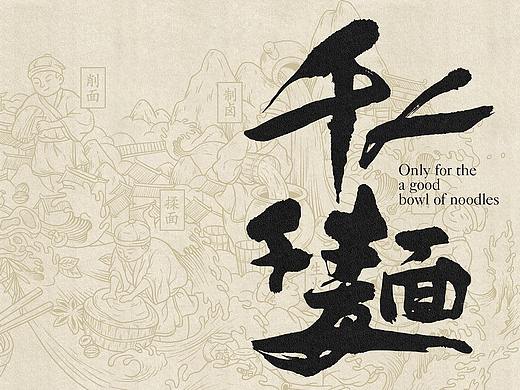 千人
千麵
Only for the
a good
bowl of noodles
削面
制卤
揉面